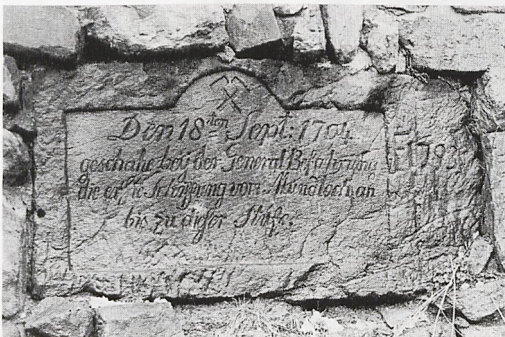 Den 18ten Sept: 1704
geschahe bey der General Befahrung
die vom Mundloch an
bis zu dießer Stufe.
1793